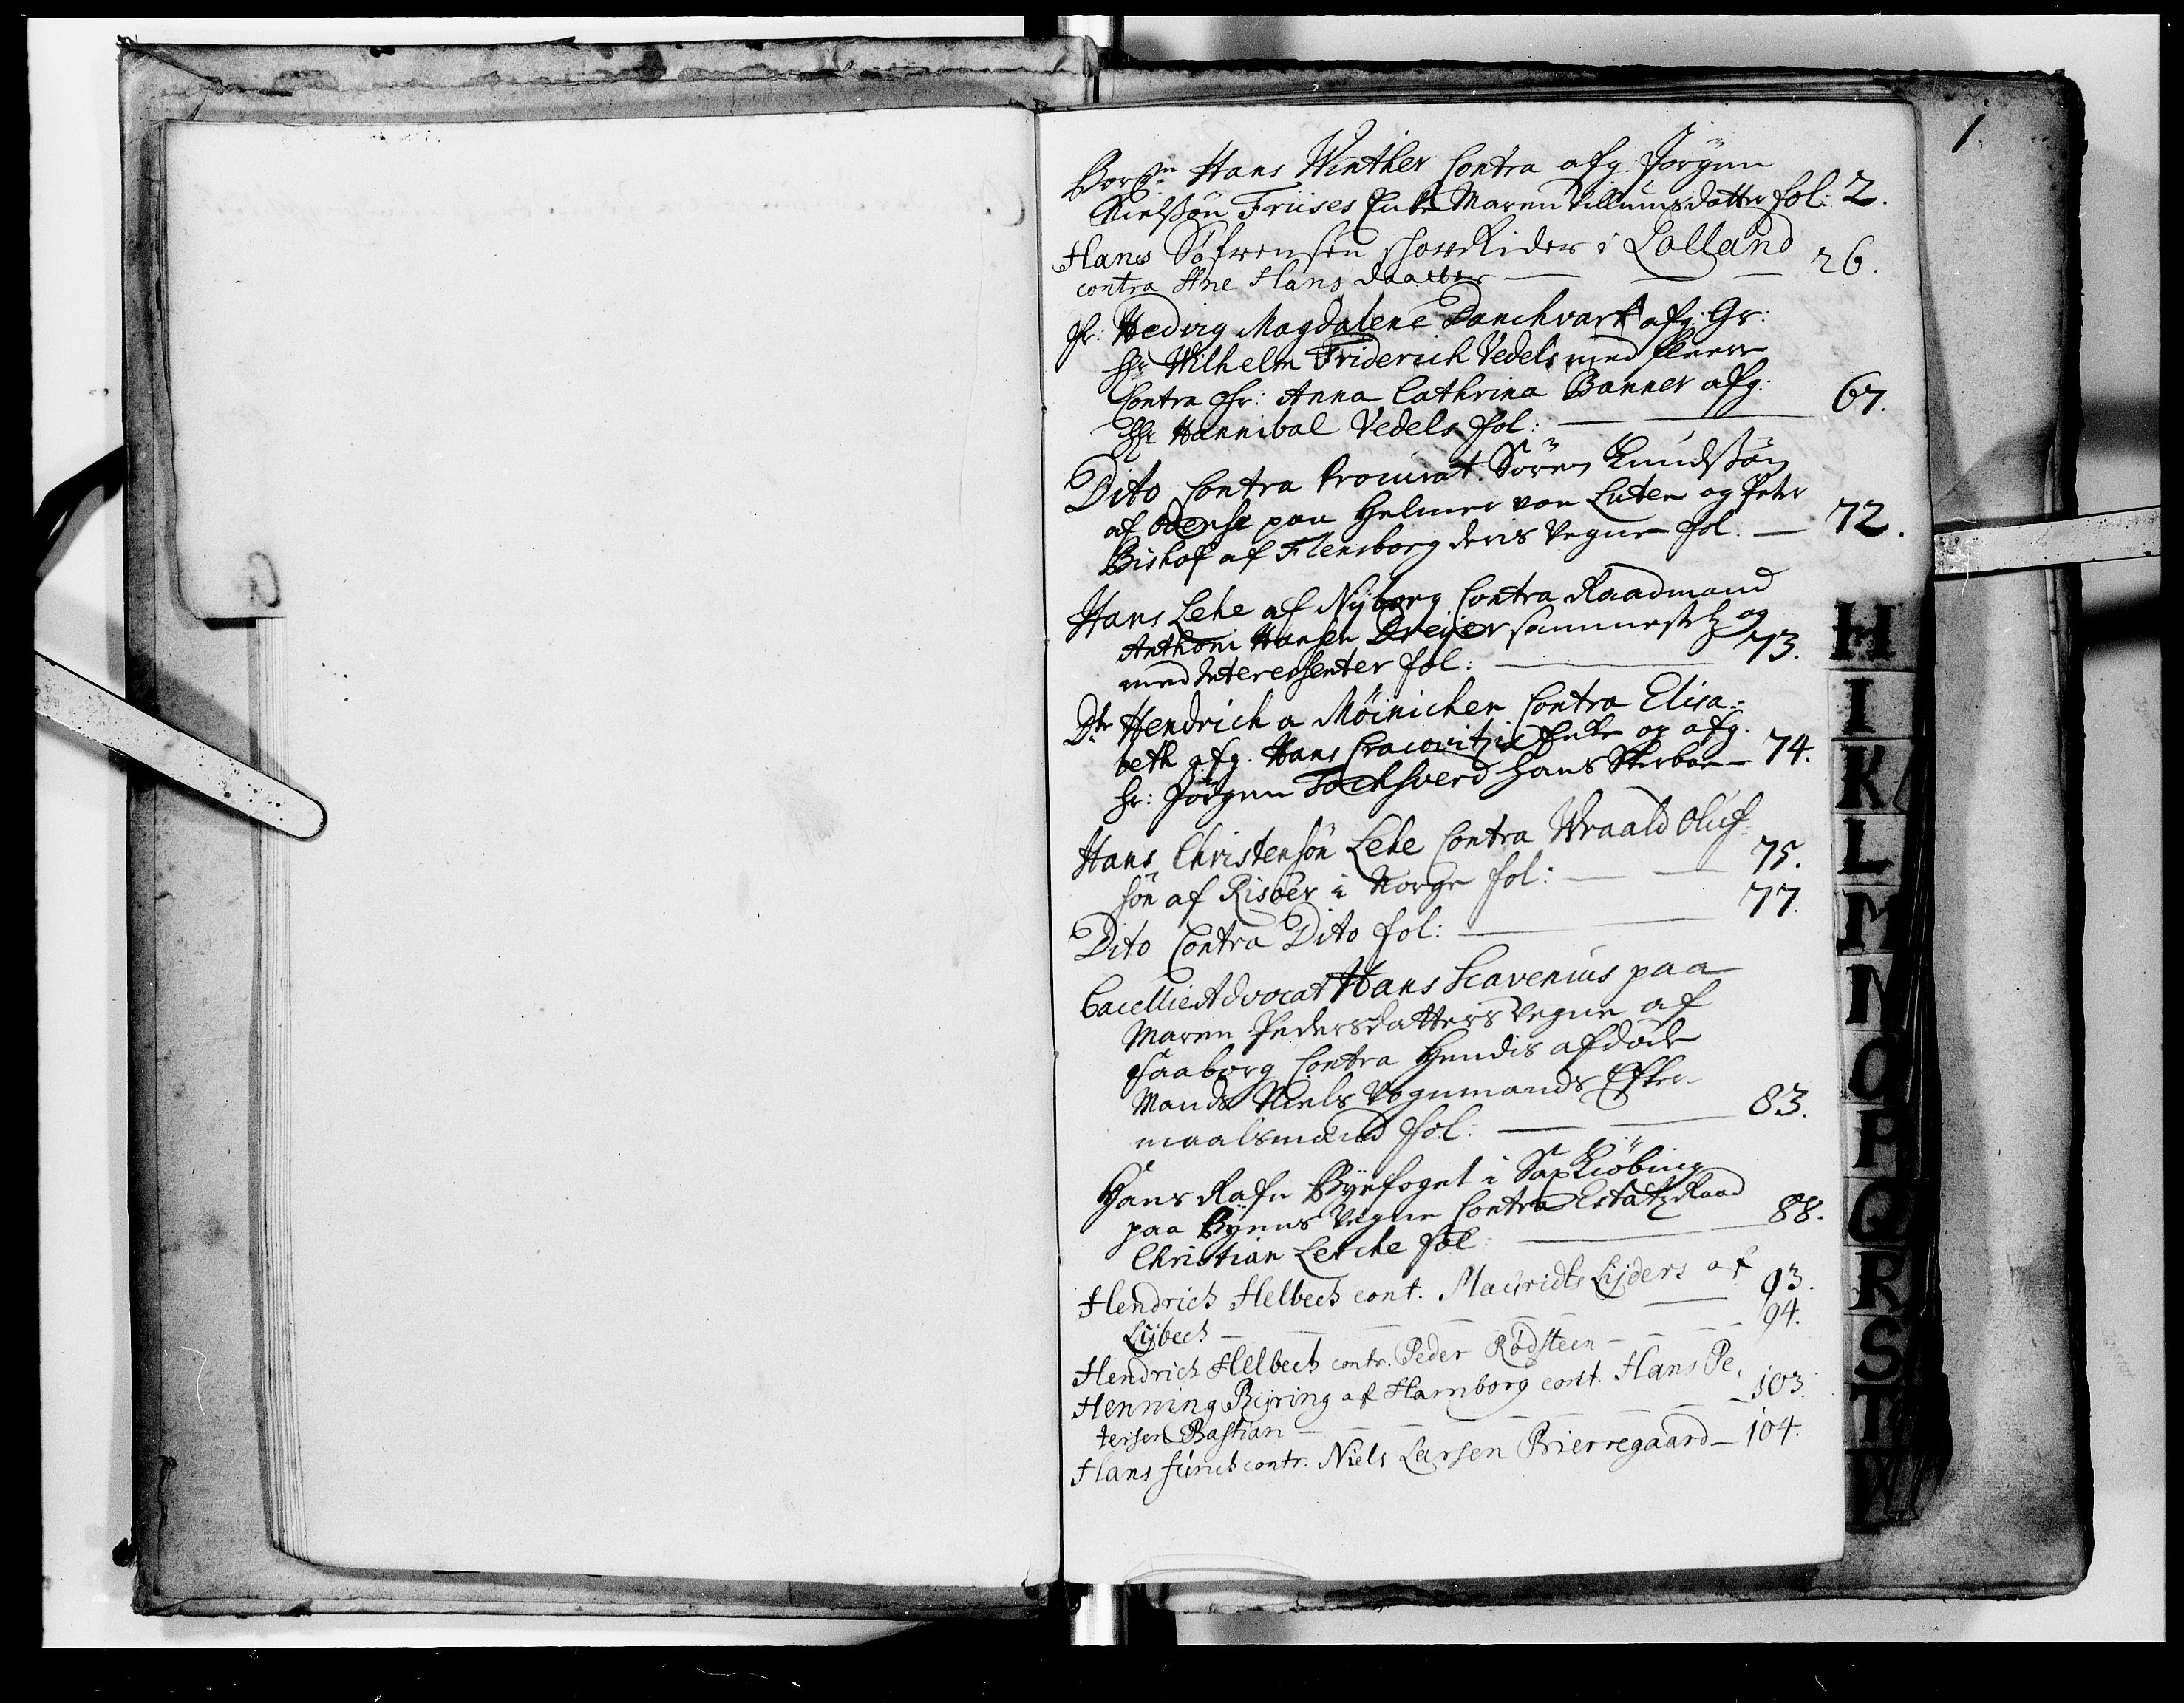 1.
Borgm Hans Winther Contra afg. Jörgen
Nielssøn Friises Enke Maren Villumsdatter fol: 2.
Hans Søfrensen skovRider i Lolland
contra Ane Hans daatter — — 26.
Fr: Hedvig Magdalene Danchvart afg: Gr:
Hr Wilhelm Friderich Vedels med fleere
Contra Fr: Anna Cathrina Banner afg:
Hr Hannibal Vedels fol: — — 67.
Dito Contra Procurat. Sören Knudssön
af Odense paa Helmer von Luten og Peter
Bishof af Flensborg deris Vegne fol. — 72.
Hans Lehe af Nyborg Contra Raadmand
Anthoni Hansen Dreyer sammestetz og
med Interessenter fol: — 73.
Dhr Hendrich a Möinichen Contra Elisa=
beth afg. Hans Cracovitzis Enke og afg.
Hr: Jörgen Fochsverd hans Sterboe — 74.
Hans Christensön Lehe Contra Wraald Oluf-
sön af Risöer i Norge fol: — — 75.
Dito Contra Dito fol: — 77.
Cancellie Advocat Hans Scavenius paa
Maren Pedersdatters Vegne af
Faaborg Contra Hendis afdöde
Mands Niels Vognmands Efter-
maalsmænd fol: — — 83.
Hans Rafn Byefoget i SaxKiöbing
paa Byens Vegne Contra EstatzRaad
Christian Lerche fol: — 88.
Hendrich Helbech cont. Mauridts Lyders af
Lybech — — — 93.
Hendrich Helbech contr. Peder Rødsteen — 94.
Henning Byring af Hamborg cont. Hans Pe,
tersen Bastian — — — 103.
Hans contr. Niels Larsen Brierregaard — 104.
G
H
I
K
L
M
N
O
P
Q
R
S
T
W